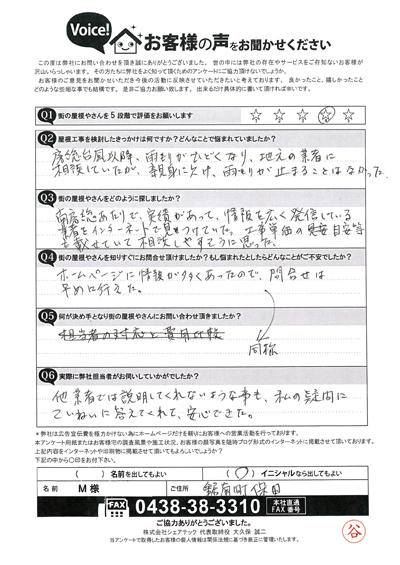 Voice!
お客様の声をお聞かせください
この度は弊社にお問い合わせを頂き誠にありがとうございました。世の中には弊社の存在やサービスをご存知ないお客様が
沢山いらっしゃいます。その方たちに弊社をよく知って頂くためのアンケートにご協力頂けないでしょうか。
お客様のご意見をお聞かせいただき今後の活動に反映させていただきたいと考えております。良かったこと、嬉しかったこと
どのような些細な事でも結構です。是非ご協力お願い致します。出来るだけ具体的に書いて頂ければ幸いです。
Q1 街の屋根やさんを5段階で評価をお願いします
☆ ☆ ☆ ☆ ☆
Q2 屋根工事を検討したきっかけは何ですか？どんなことで悩まれていましたか？
房総台風以降、雨もりがひどくなり、地元の業者に
相談していたが、親身に欠け、雨もりが止まることはなかった
Q3 街の屋根やさんをどのように探しましたか？
南房総あたりで、実績があって、情報を広く発信している
業者をインターネットで見つけていた。工事単価の目安等
を載せていて相談しやすそうに思った。
Q4 街の屋根やさんを知りすぐにお問合せ頂けましたか？もし悩まれたとしたらどんなことがご不安でしたか？
ホームページに情報が多くあったので、問合せは
早めに行えた。
Q5 何が決め手となり街の屋根やさんにお問い合わせ頂きましたか？
担当者の対応と費用比較
同様
Q6 実際に弊社担当者がお伺いしていかがでしたか？
他業者では説明してくれないような事も、私の疑問に
ていねいに答えてくれて、安心できた。
※弊社は広告宣伝費を極力かけない為にホームページだけを頼りにお客様への営業活動を行っております。
本アンケート用紙またはお客様宅の調査風景や施工状況、お客様の顔写真を随時ブログ形式のインターネットに掲載させて頂いております。
上記内容をインターネットや印刷物に掲載させて頂いてもよろしいでしょうか？
下記の中から〇印をお付け下さい。
（ ）名前を出してもよい （〇）イニシャルなら出してもよい
名前 M様 ご住所 鋸南町保田
FAX 0438-38-3310 本社直通FAX番号
ご協力ありがとうございました。
株式会社シェアテック 代表取締役 大久保 誠二
当アンケートで取得したお客様の個人情報は関係法規に基づき厳正に管理いたします。
谷